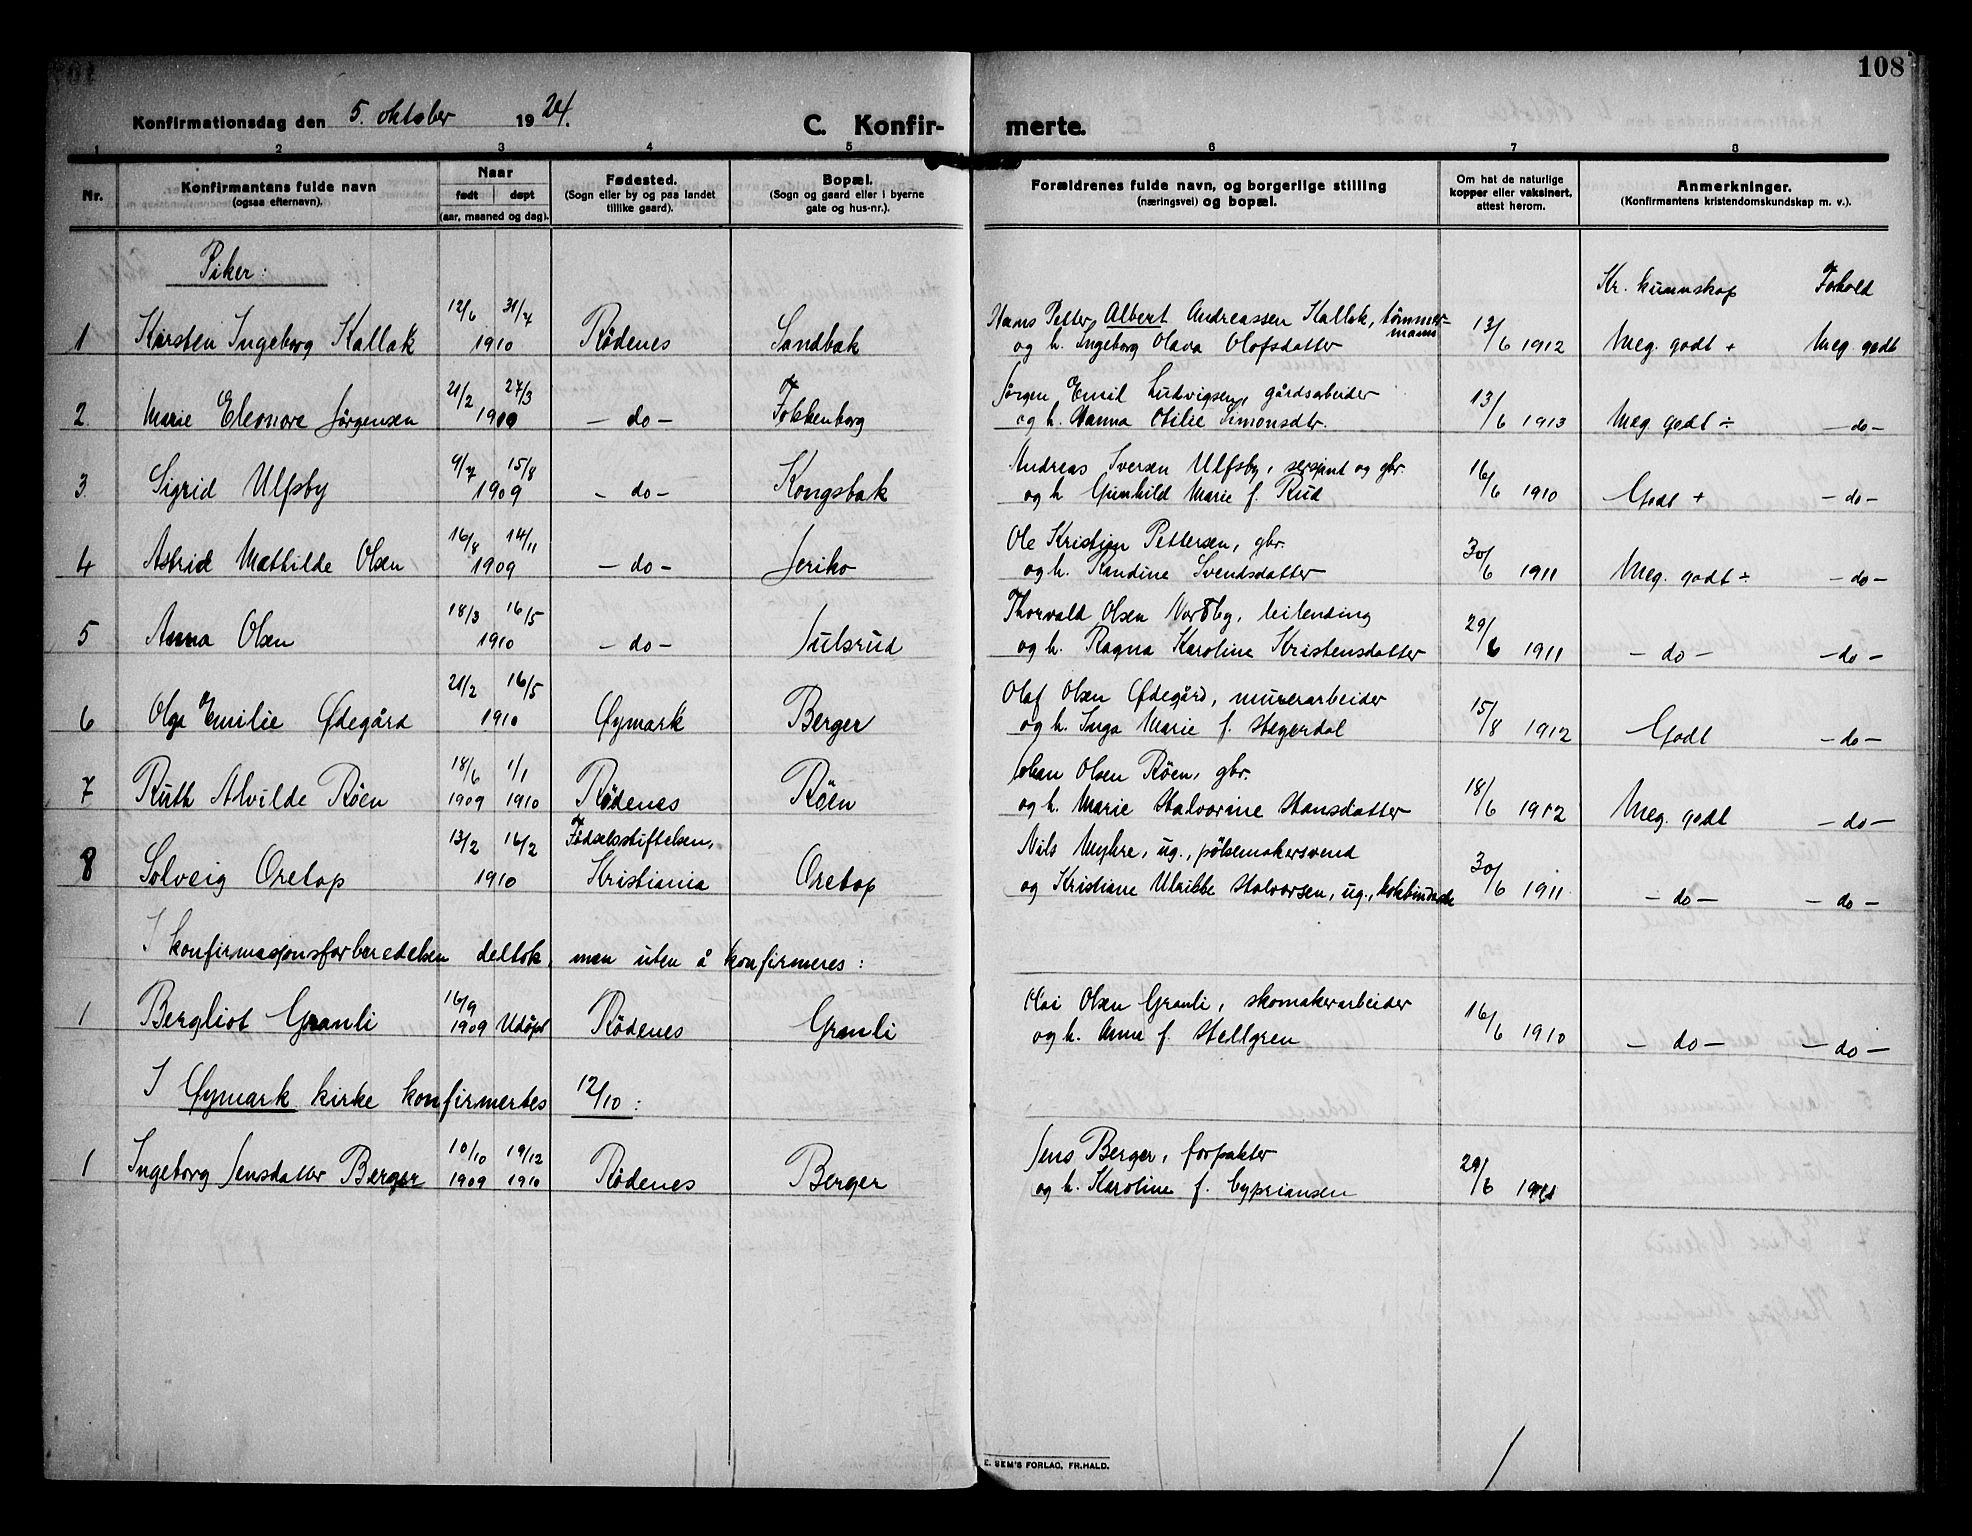 108
Konfirmationsdag den 5. oktober 1924.
C. Konfirmerte.
1 2 3 4 5 6 7 8
Nr.
Konfirmantens fulde navn
(ogsaa efternavn).
Naar
født døpt
(aar, maaned og dag).
Fødested.
(Sogn eller by og paa landet
tillike gaard).
Bopæl.
(Sogn og gaard eller i byerne
gate og hus-nr.).
Forældrenes fulde navn, og borgerlige stilling
(næringsvei) og bopæl.
Om hat de naturlige
kopper eller vaksinert,
attest herom.
Anmerkninger.
(Konfirmantens kristendomskundskap m. v.).
Piker:
Kr. kunnskap Forhold
12/6 31/7 Hans Petter Albert Andreassen Kallak, tømmermann
1 Karsten Ingeborg Kallak 1910 Rødenes Sandbæk og h. Ingeborg Olava Olofsdatter 13/6 1912 Meg. godt + Meg. godt
21/2 27/3 Jørgen Emil Ludvigsen, gårdsarbeider
2. Marie Eleonore Jørgensen 1910 - do - Fokkenborg og h. Hanna Otilie Simonsdtr. 13/6 1913 Meg godt ÷ - do -
9/7 15/8 Andreas Iversen Ulfsby, sersjant og gbr.
3. Sigrid Ulfsby 1909 - do - Kongsbak og h Gunhild Marie f. Rud 16/6 1910 Godt + - do -
16/8 14/11 Ole Kristian Pettersen, gbr.
4 Astrid Mathilde Olsen 1909 - do - Jeriko og h. Kandine Svendsdatter 30/6 1911 Meg. godt ÷ - do -
18/3 16/5 Thorvald Olsen Nordby, leilending
5 Anna Olsen 1910 - do - Julsrud og h. Ragna Karoline Kristensdatter 29/6 1911 - do - - do -
21/2 16/5 Olaf Olsen Ødegård, murerarbeider
6 Olga Emilie Ødegård 1910 Øymark Berger og h. Inga Marie f. Hagerdal 15/8 1912 Godt - do -
18/6 1/1 Johan Olsen Røen, gbr.
7 Ruth Alvilde Røen 1909 1910 Rødenes Røen og h. Marie Halvorine Hansdatter 18/6 1912 Meg. godt - do -
13/2 16/2 Fødselsstiftelsen, Nils Myhre, ug., pølsemakersvend
8 Solveig Oretop 1910 Kristiania Oretop og Kristiane Ulrikke Halvorsen, ug., 30/6 1911 - do - - do -
I konfirmasjonsforberedelsen deltok, men uten å konfirmeres:
16/9 Olai Olsen Granli, skomakerarbeider
1 Bergliot Granli 1909 Udøpt Rødenes Granli og h. Anna f. Hellgren 16/6 1910 - do - - do -
I Øymark kirke konfirmertes 12/10:
10/10 19/12 Jens Berger, forpakter
1 Ingeborg Jensdatter Berger 1909 1910 Rødenes Berger og h. Karoline f. Cypriansen 29/6 1911
E. SEM'S FORLAG, FR.HALD.